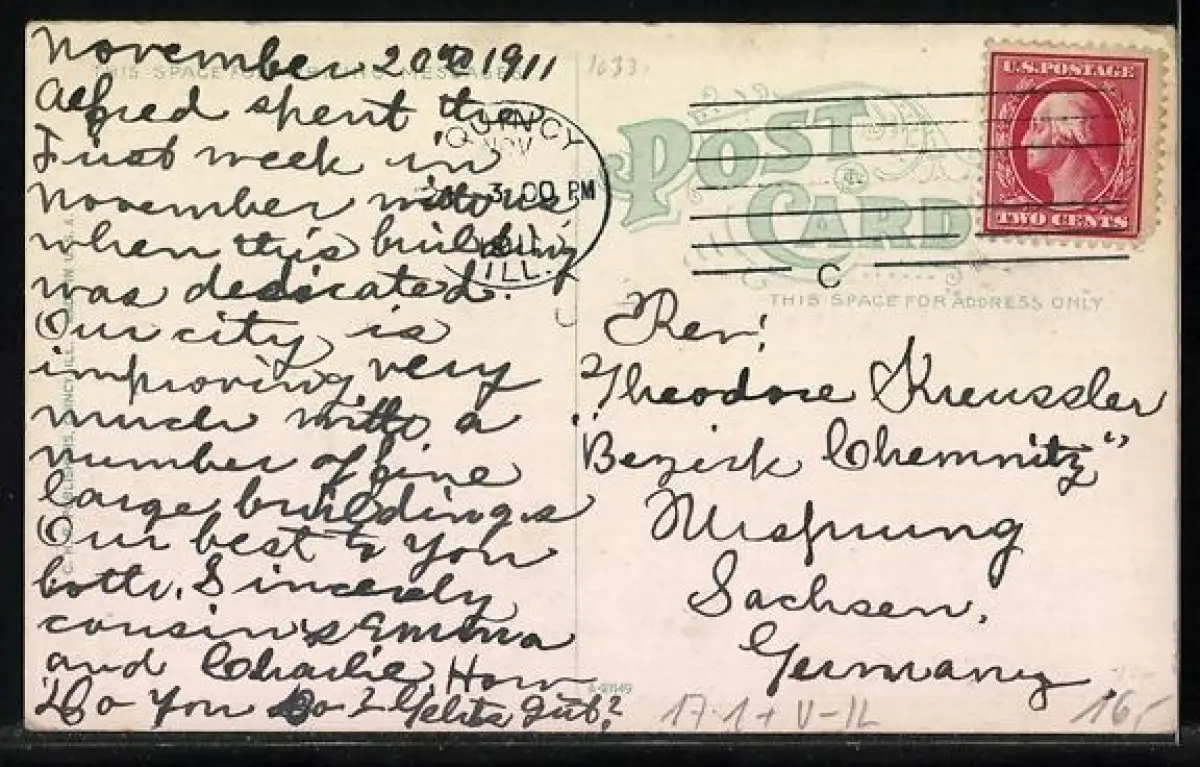 November 20th 1911
Alfred spent the
First week in
November with us
when this building
was dedicated.
Our city is
improving very
much with a
number of fine
large buildings
Our best to you
both. Sincerely
cousin's Emma
and Charlie, How
Do You Do? Gehts gut?
THIS SPACE FOR MESSAGE
1633
QUINCY
NOV
3-00 PM
ILL.
C
POST
CARD
THIS SPACE FOR ADDRESS ONLY
U.S. POSTAGE
TWO CENTS
Rev.
Theodore Kreussler
"Bezirk Chemnitz"
Ursprung
Sachsen,
Germany
A-91149
17·1+ V-IL
16,-